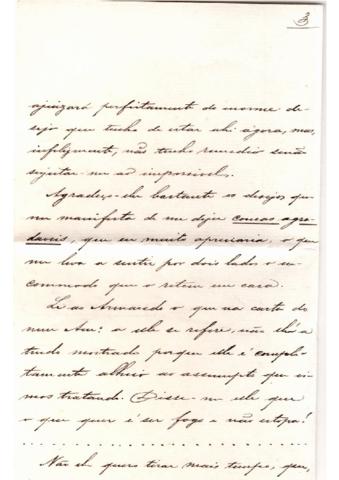 3
ajuizará perfeitamente do enorme de-
sejo que tenho de estar ahi ágora, mas,
infelizmente, não tenho remedio senão
sujeitar-me ao impossivel.
Agradeço-lhe bastante os desejos que
me manifesta de me dizer cousas agra-
daveis, que eu muito apreciaria, o que
me leva a sentir por dois lados o in-
commodo que o retem em casa.
Li ao Armando o que na carta do
meu Am: a elle se refere, não lh'a
tendo mostrado porque elle é comple-
tamente alheio ao assumpto que vi-
mos tratando. Disse-me elle que
o que quer é ser fogo e não estopa!
. . . . . . . . . . . . . . . . . . . . . . . .
Não lhe quero tirar mais tempo, que,